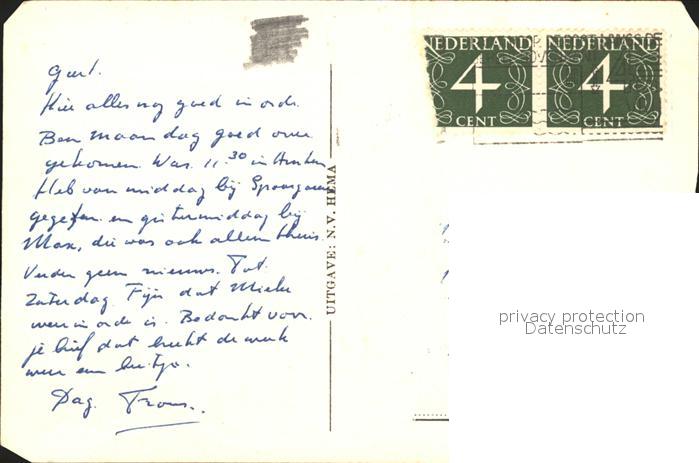 NEDERLAND NEDERLAND
4 4
CENT CENT
Geert.
Hier alles nog goed in orde.
Ben maandag goed over
gekomen. Was 11.30 in
Heb van middag bij
gegeten en gistermiddag bij
Max, die was ook alleen thuis.
Verder geen nieuws. Tot
Zaterdag. Fijn dat Mieke
weer in orde is. Bedankt voor
je brief dat breekt de week
weer een beetje.
Dag.
UITGAVE: N.V. HEMA
privacy protection
Datenschutz